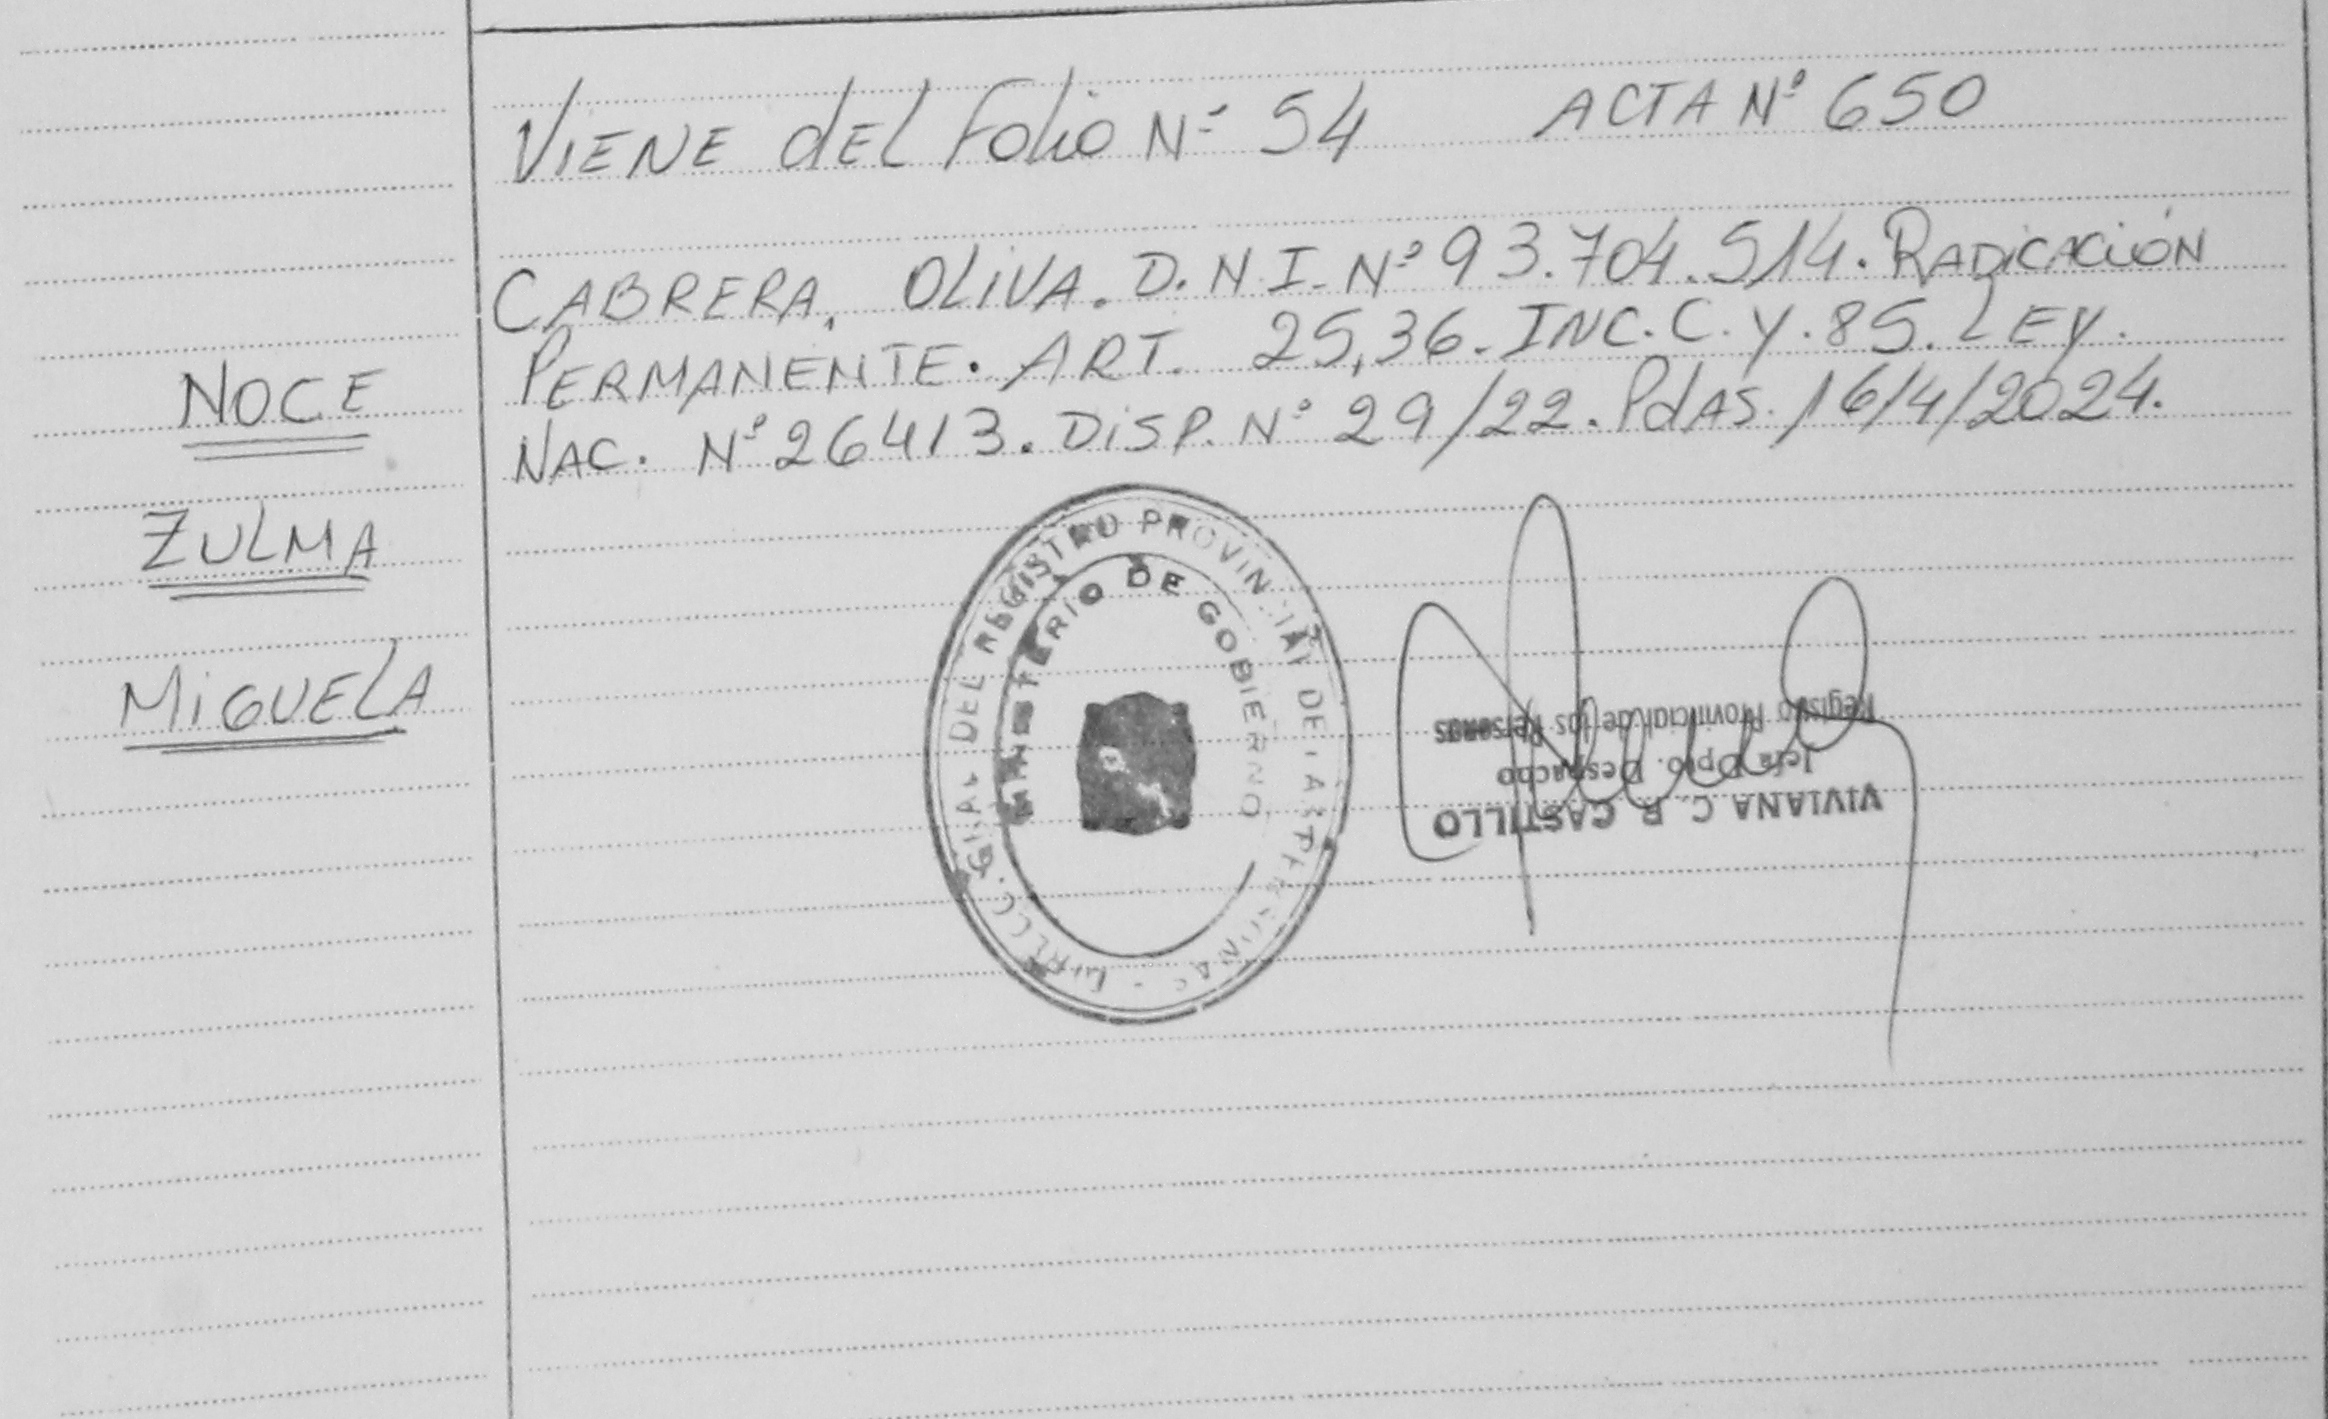 VIENE dEL Folio Nº 54 ACTA Nº 650
CABRERA, OLIVA. D.N.I. Nº 93.704.514. RADICACIÓN
PERMANENTE. ART. 25,36. INC. C. Y. 85. LEY.
NAC. Nº 26413. DISP. Nº 29/22. PdAS. 16/4/2024.
NOCE
ZULMA
MIGUELA
DEL REGISTRO PROVINCIAL DE LAS PERSONAS
MINISTERIO DE GOBIERNO
VIVIANA C. R. CASTILLO
Jefa Dpto. Despacho
Registro Provincial de las Personas